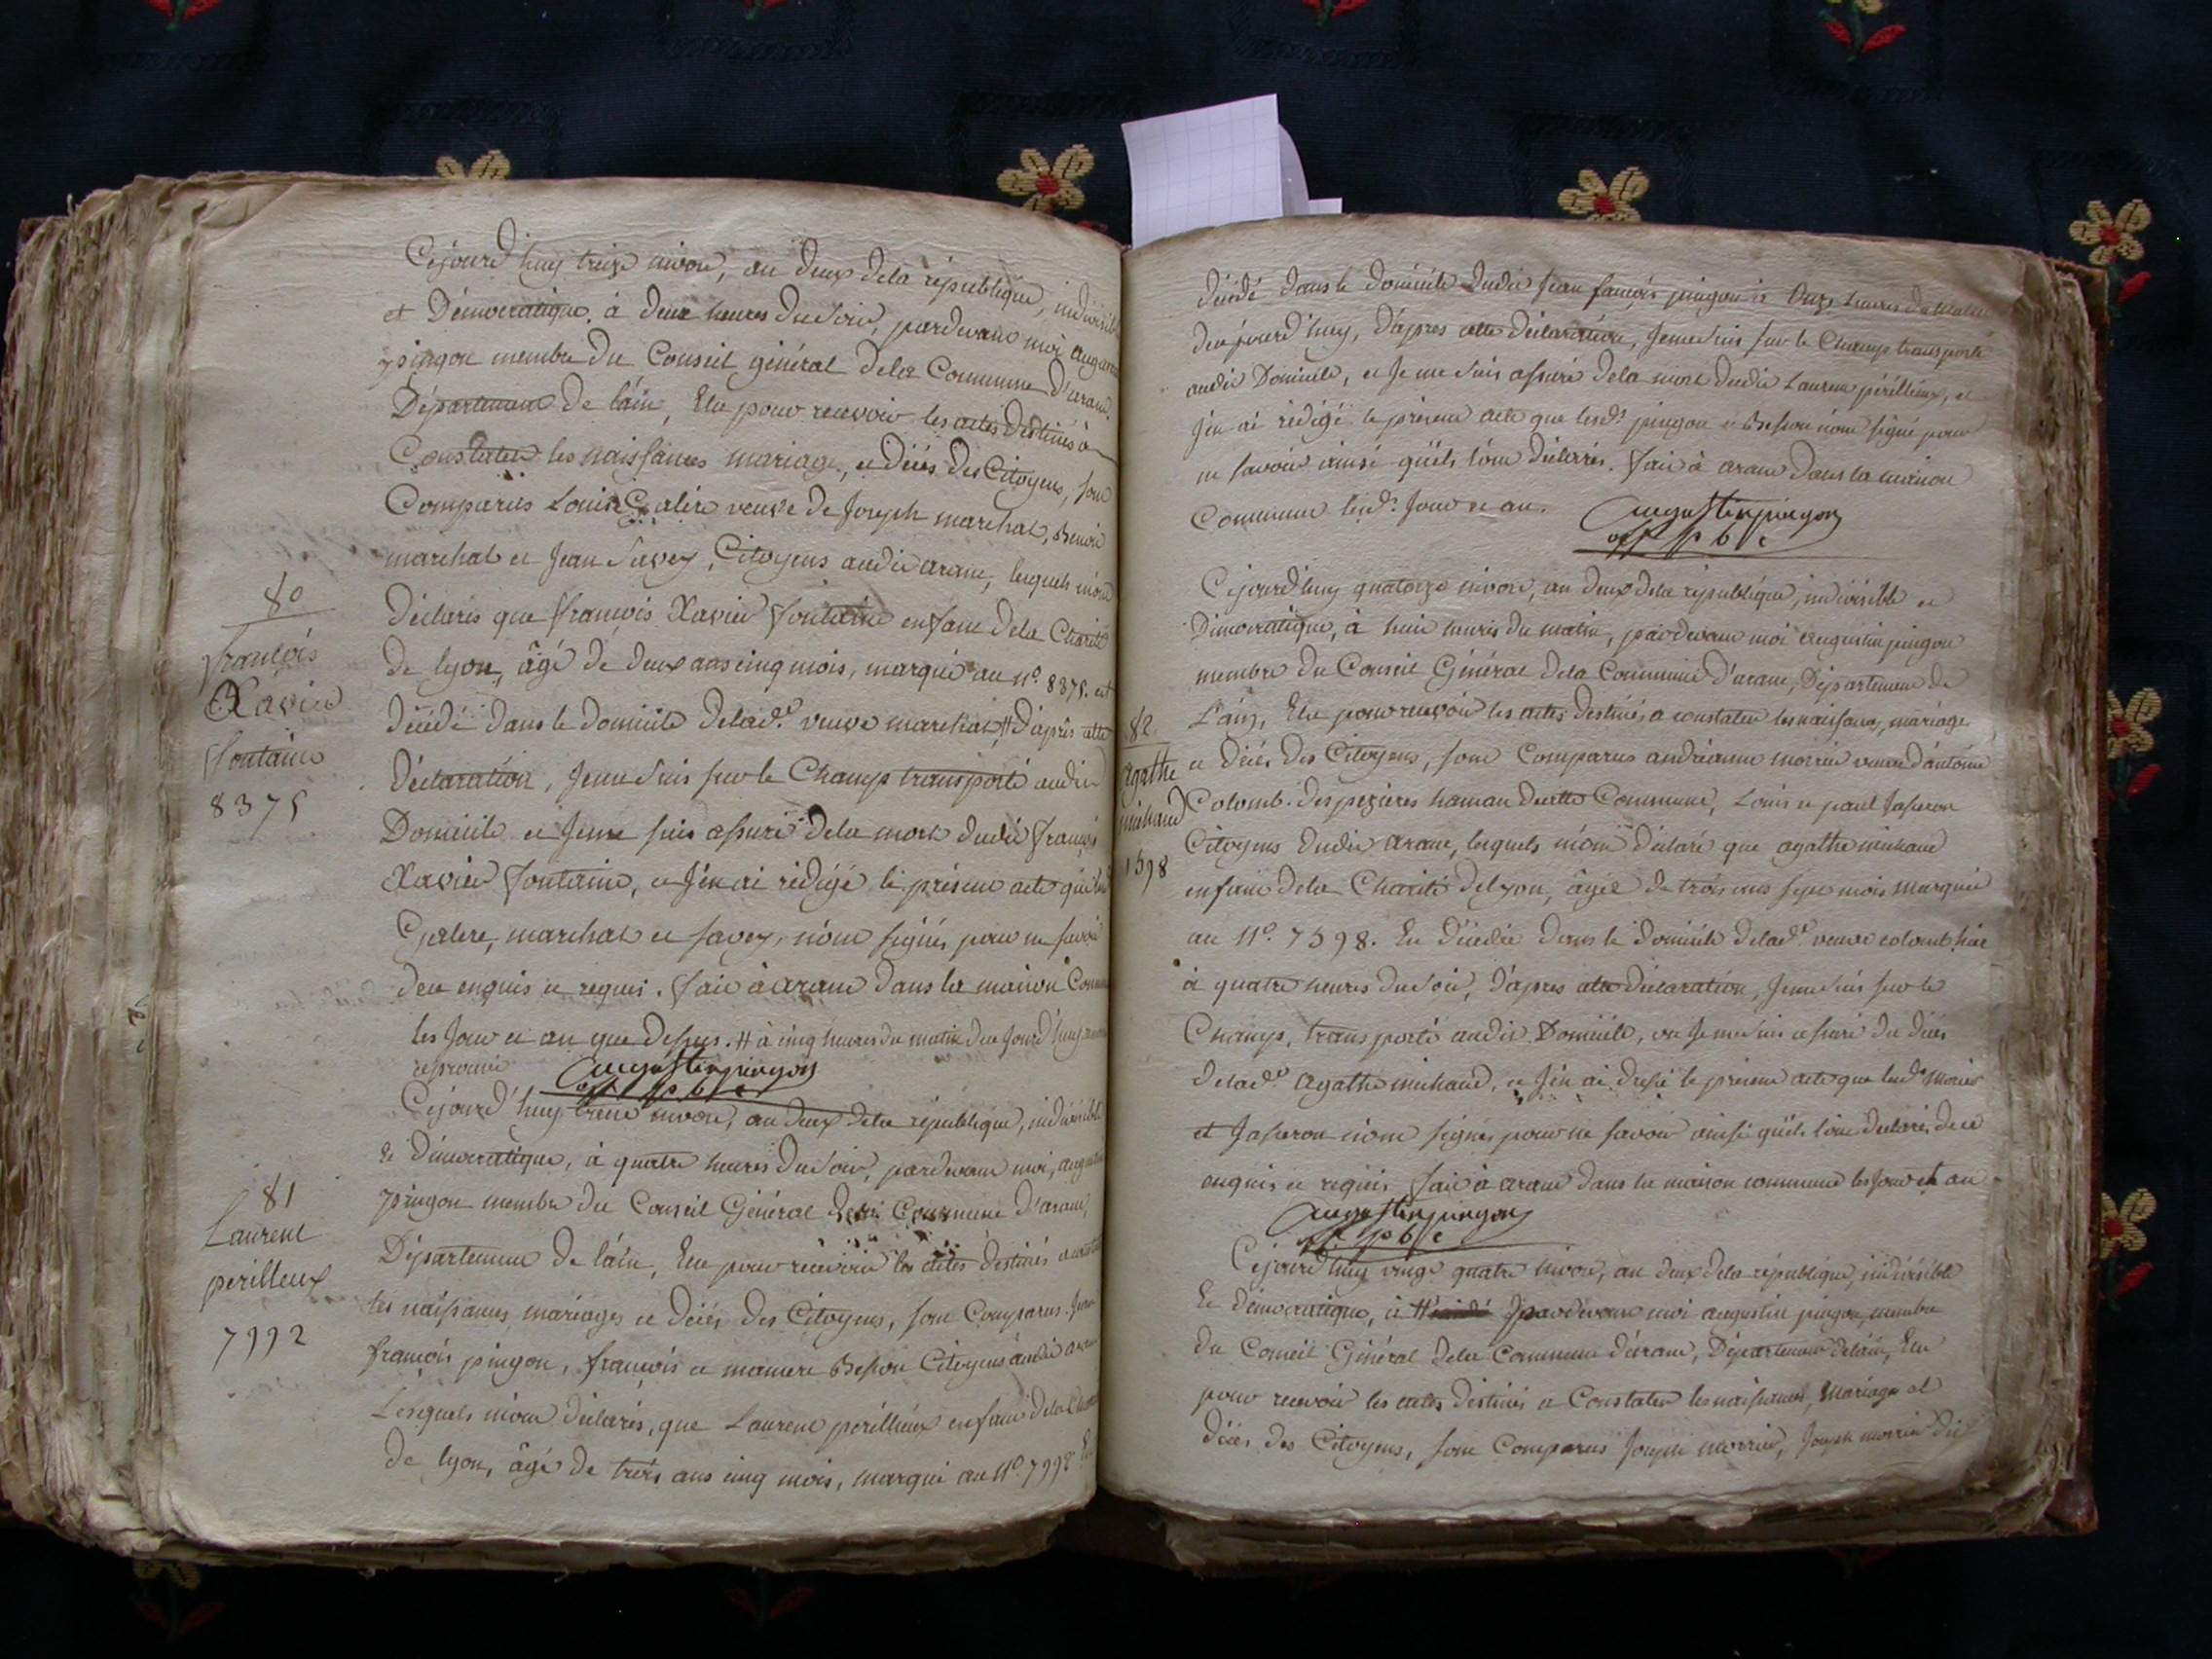 Cejourd'huy treize nivose, an deux dela république, indivisible
et Démocratique. à deux heures du soir, pardevant moi augustin
pingon membre du Conseil général dela Commune d'aranc.
Département de l'ain, Elu pour recevoir les actes destinés à
Constater les naissances mariage, et décès des Citoyens, sont
Comparus Louise Galere veuve de Joseph marchat, Benoit
marchat et Jean Savey, Citoyens audit aranc, lesquels m'ont
80
françois
Xavier
fontaine
8375
Déclarés que françois Xavier fontaine enfant dela Charité
de lyon, âgé de deux ans cinq mois, marqué au N°. 8375. est
décédé dans le domicile delad.e veuve marchat, # d'après cette
Déclaration, Jeme suis sur le Champ transporté audit
Domicile et Jeme suis assuré dela mort dudit françois
Xavier fontaine, et J'en ai rédigé le présent acte que
Galere, marchat et Savey, n'ont signés pour ne savoir
de ce enquis et requis. fait à aranc dans la maison Commune
les Jour et an que dessus. # à cinq heures du matin du Jourd'huy
approuvé
augustin pingon
off p b l c
81
Laurent
perilleux
7992
Cejourd'huy treize nivose, an deux dela république, indivisible
Et démocratique, à quatre heures du soir, pardevant moi, augustin
pingon membre du Conseil Général dela Commune d'aranc,
Département de l'ain, Elu pour recevoir les actes destinés a constater
les naissances, mariages et décès des Citoyens, sont Comparus Jean
françois pingon, françois et Besson Citoyens audit aranc
Lesquels m'ont déclarés, que Laurent perilleux enfant dela Charité
de lyon, âgé de trois ans cinq mois, marqué au N°. 7992 Est
décédé dans le domicile dudit Jean françois pingon à Onze heures du matin
du jourd'huy, d'après cette déclaration, Jeme suis sur le Champ transporté
audit Domicile, et Je me suis assuré dela mort dudit Laurent périlleux, et
J'en ai rédigé le présent acte que lesd.s pingon et Besson n'ont signé pour
ne savoir ainsi qu'ils l'ont déclarés. fait à aranc dans la maison
Commune lesd.s Jour et an.
augustin pingon
off p b l c
Cejourd'huy quatorze nivose, an deux dela république, indivisible et
Démocratique, à huit heures du matin, pardevant moi augustin pingon
membre du Conseil Général dela Commune d'aranc, Département de
82
agathe
michaud
7598
L'ain, Elu pour recevoir les actes destinés a constater les naissances, mariage
et décès des Citoyens, sont Comparus andréanne morrier veuve d'antoine
Colomb. des pezieres hamau de cette Commune, Louis et paul Jasseron
Citoyens dudit aranc, lesquels m'ont déclaré que agathe michaud
enfant dela Charité de lyon, âgée de trois ans sept mois marquée
au N°. 7598. Est décédée dans le domicile delad.e veuve colomb. hier
à quatre heures du soir, d'après cette déclaration, Jeme suis sur le
Champ, transporté audit Domicile, ou Jeme suis assuré du décès
delad.e agathe michaud, et J'en ai dressé le présent acte que lesd.s morier
et Jasseron n'ont signés pour ne savoir ainsi qu'ils l'ont déclarés de ce
enquis et requis fait à aranc dans la maison commune les Jour et an
augustin pingon
off p b l c
Cejourd'huy vingt quatre nivose, an deux dela république, indivisible
Et démocratique, à pardevant moi augustin pingon membre
du Conseil Général dela Commune d'aranc, Département de l'ain, Elu
pour recevoir les actes destinés a Constater les naissances, Mariage et
décès des Citoyens, sont Comparus Joseph morrier, Joseph morrier dit